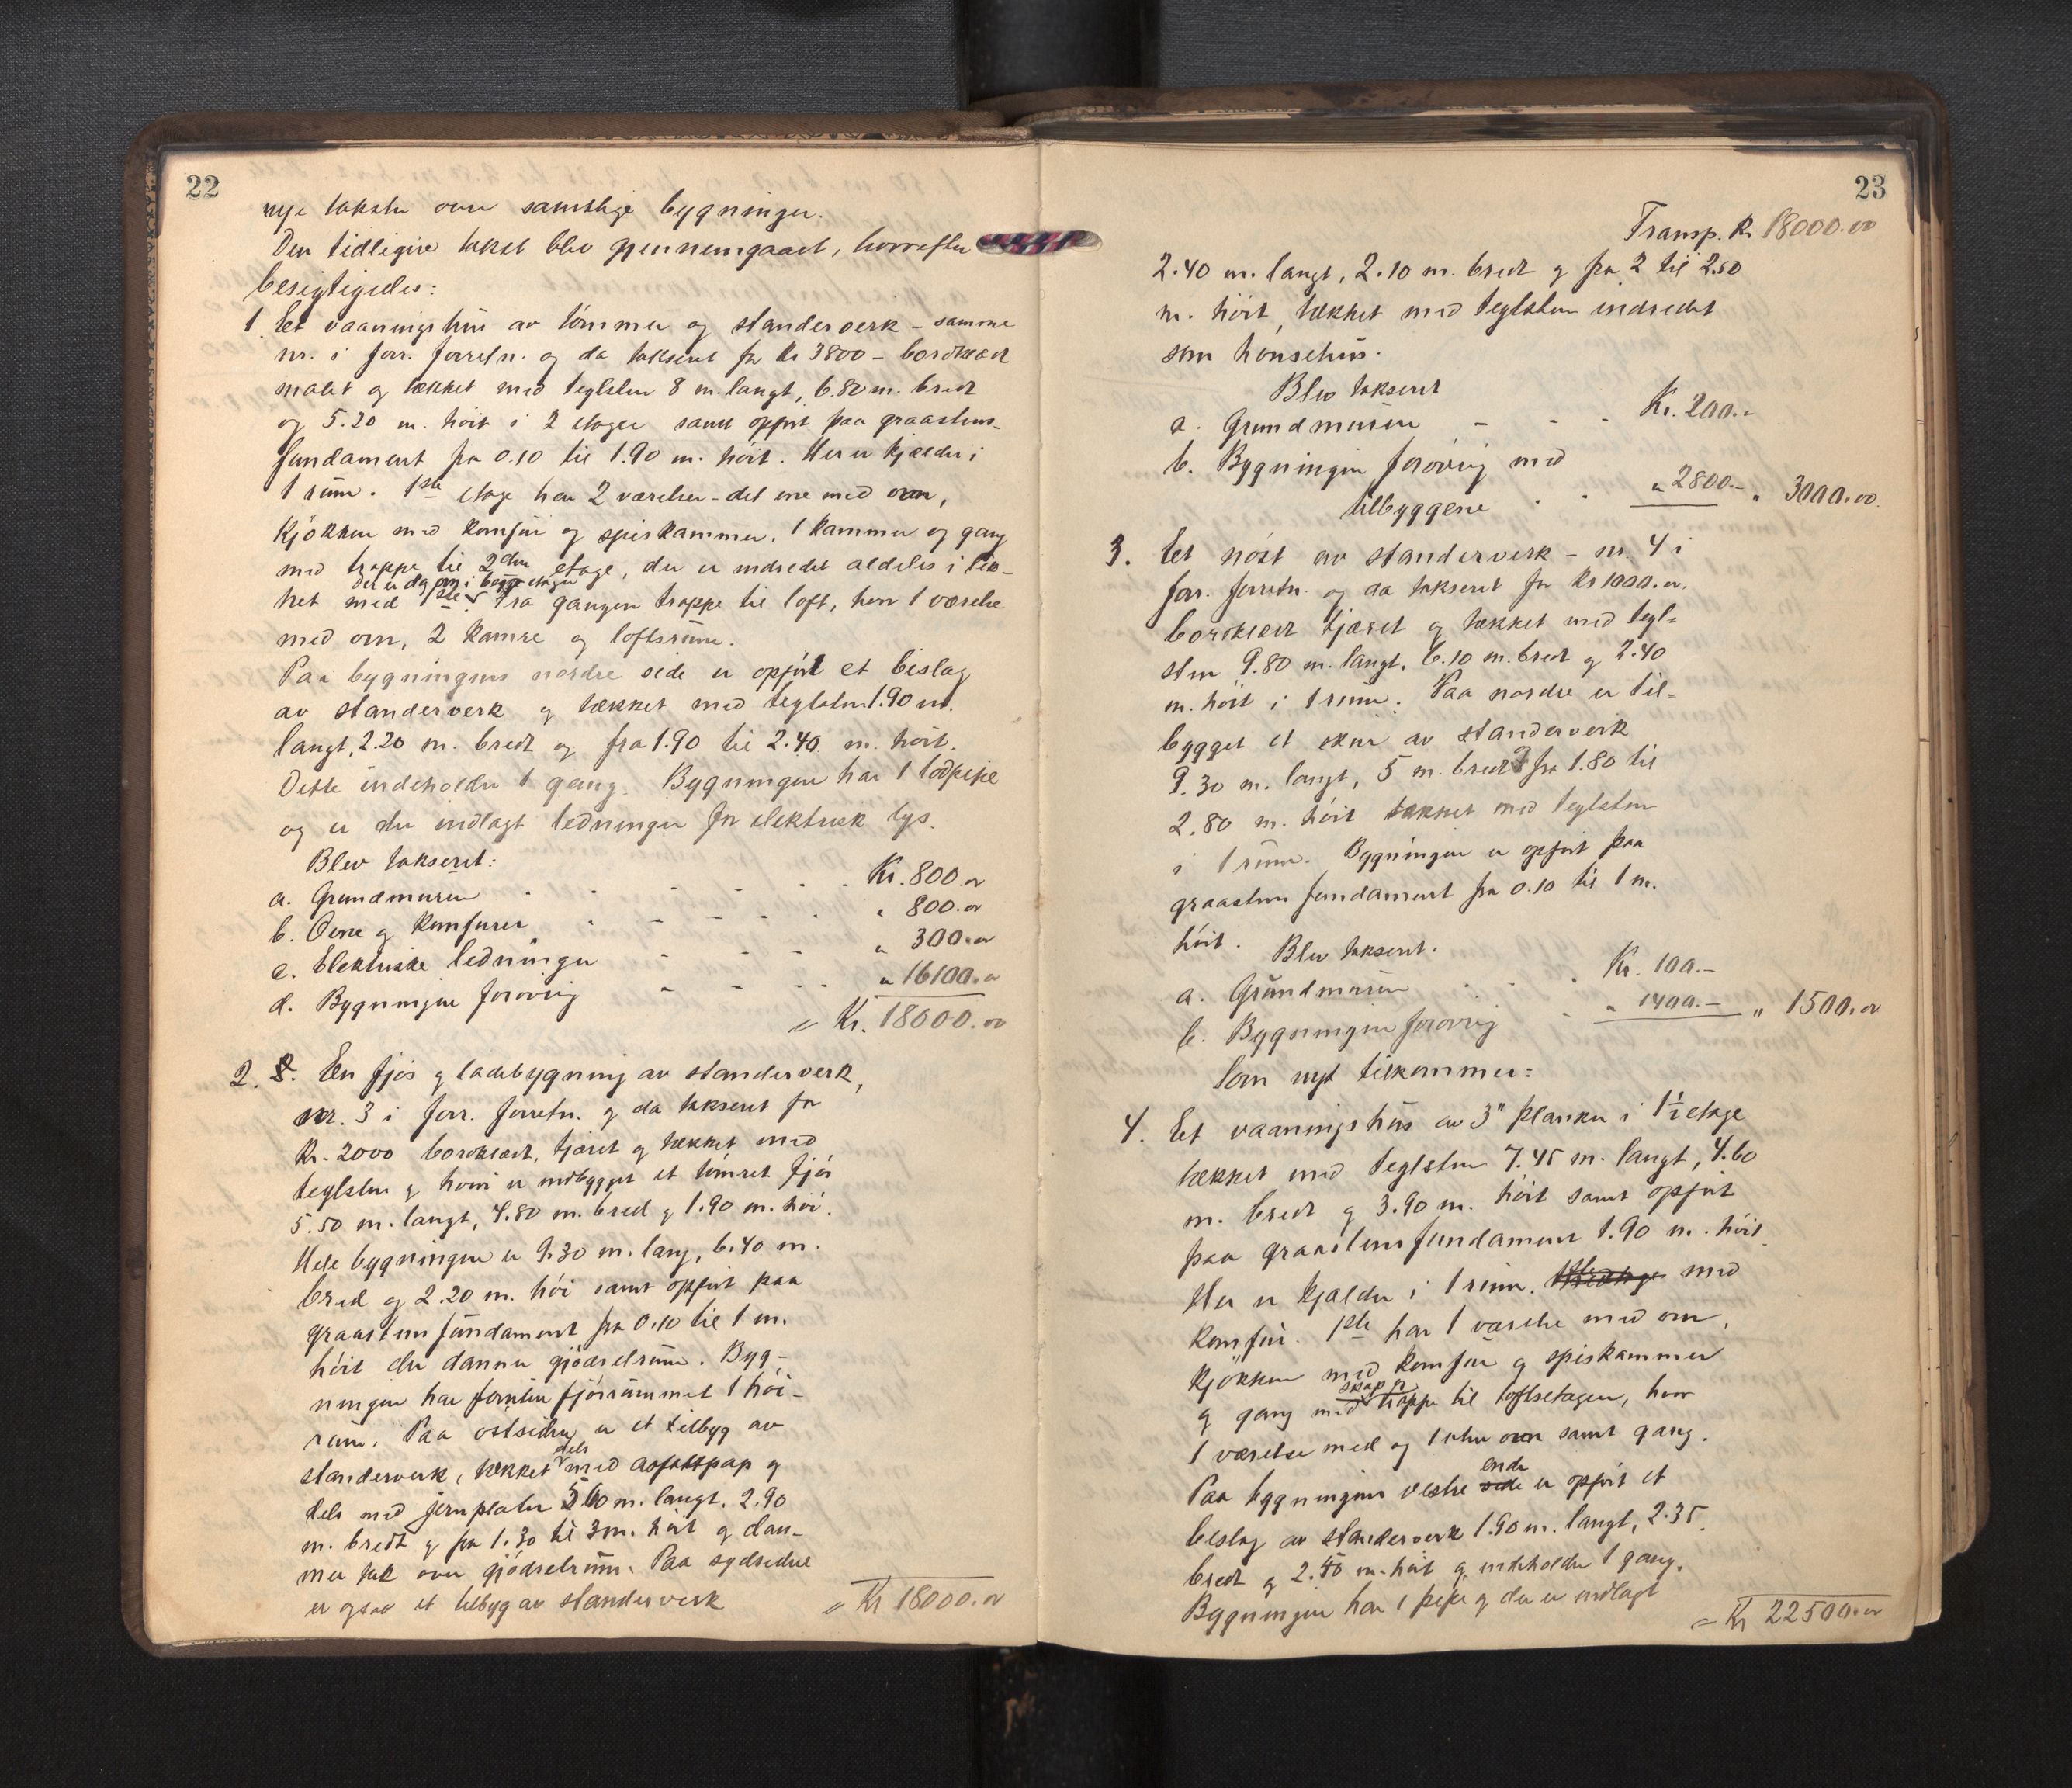 22
nye takster over samtlige bygninger.
Den tidligere takst blev gjennemgaaet, hvorefter
besigtigedes:
1. Et vaaningshus av tømmer og standerverk – samme
nr. i forr. forretn. og da taksert for Kr 3800 – bordklædt
malet og tækket med teglsten 8 m. langt, 6.80 m. bredt
og 5.20 m. høit i 2 etager samt opført paa graastens-
fundament fra 0.10 til 1.90 m. høit. Her er kjælder i
1 rum. 1ste etage har 2 værelser – det ene med ovn,
Kjøkken med komfur og spiskammer, 1 kammer og gang
med trappe til 2den etage, der er indredet aldeles i lik-
Det er dog ovn i begge etager
het med 1ste. Fra gangen trappe til loft, hvor 1 værelse
med ovn, 2 kamre og loftsrum.
Paa bygningens nordre side er opført et bislag
av standerverk og tækket med teglsten 1.90 m.
langt, 2.20 m. bredt og fra 1.90 til 2.40 m. høit.
Dette indeholder 1 gang. Bygningen har 1 lodpipe
og er der indlagt ledninger for elektrisk lys.
Blev taksert:
a. Grundmuren Kr. 800.00
b. Ovne og komfurer " 800.00
c. Elektriske ledninger " 300.00
d. Bygningen forøvrig " 16100.00
= Kr. 18000.00
2. En fjøs og ladebygning av standerverk,
nr. 3 i forr. forretn. og da taksert for
Kr. 2000 bordklædt, tjæret og tækket med
teglsten og hvori er indbygget et tømret fjøs
5.50 m. langt, 4.80 m. bred og 1.90 m. høi.
Hele bygningen er 9.30 m. lang, 6.40 m.
bred og 2.20 m. høi samt opført paa
graastens fundament fra 0.10 til 1 m.
høit der danner gjødselrum. Byg-
ningen har foruten fjøsrummet 1 høi-
rum. Paa østsiden er et tilbyg av
dels
standerverk, tækket med asfaltpap og
dels med jernplater 5.60 m. langt, 2.90
m. bredt og fra 1.30 til 3 m. høit og dan-
ner tak over gjødselrum. Paa sydsiden
er ogsaa et tilbyg av standerverk
= Kr 18000.00
23
Transp. Kr. 18000.00
2.40 m. langt, 2.10 m. bredt og fra 2 til 2.50
m. høit, tækket med teglsten indredet
som hønsehus.
Blev taksert
a. Grundmuren Kr. 200.-
b. Bygningen forøvrig med
tilbyggene " 2800.- " 3000.00
3. Et nøst av standerverk – nr. 4 i
forr. forretn. og da taksert for Kr 1000.00,
bordklædt tjæret og tækket med tegl-
sten 9.80 m. langt, 6.10 m. bredt og 2.40
m. høit i 1 rum. Paa nordre er til-
bygget et skur av standerverk
9.30 m. langt, 5 m. bredt og fra 1.80 til
2.80 m. høit tækket med teglsten
i 1 rum. Bygningen er opført paa
graastens fundament fra 0.10 til 1 m.
høit. Blev taksert.
a. Grundmuren Kr. 100.-
b. Bygningen forøvrig " 1400.- " 1500.00
Som nyt tilkommer:
4. Et vaaningshus av 3" planker i 1½ etage
tækket med teglsten 7.45 m. langt, 4.60
m. bredt og 3.90 m. høit samt opført
paa graastens fundament 1.90 m. høit.
Her er kjælder i 1 rum. med
komfur. 1ste har 1 værelse med ovn,
kjøkken med komfur og spiskammer
skap og
og gang med trappe til loftsetagen, hvor
1 værelse med og 1 uten ovn samt gang.
ende
Paa bygningens vestre side er opført et
beslag av standerverk 1.90 m. langt, 2.35
bredt og 2.40 m. høit og indeholder 1 gang.
Bygningen har 1 pipe og der er indlagt
= Kr 22500.00